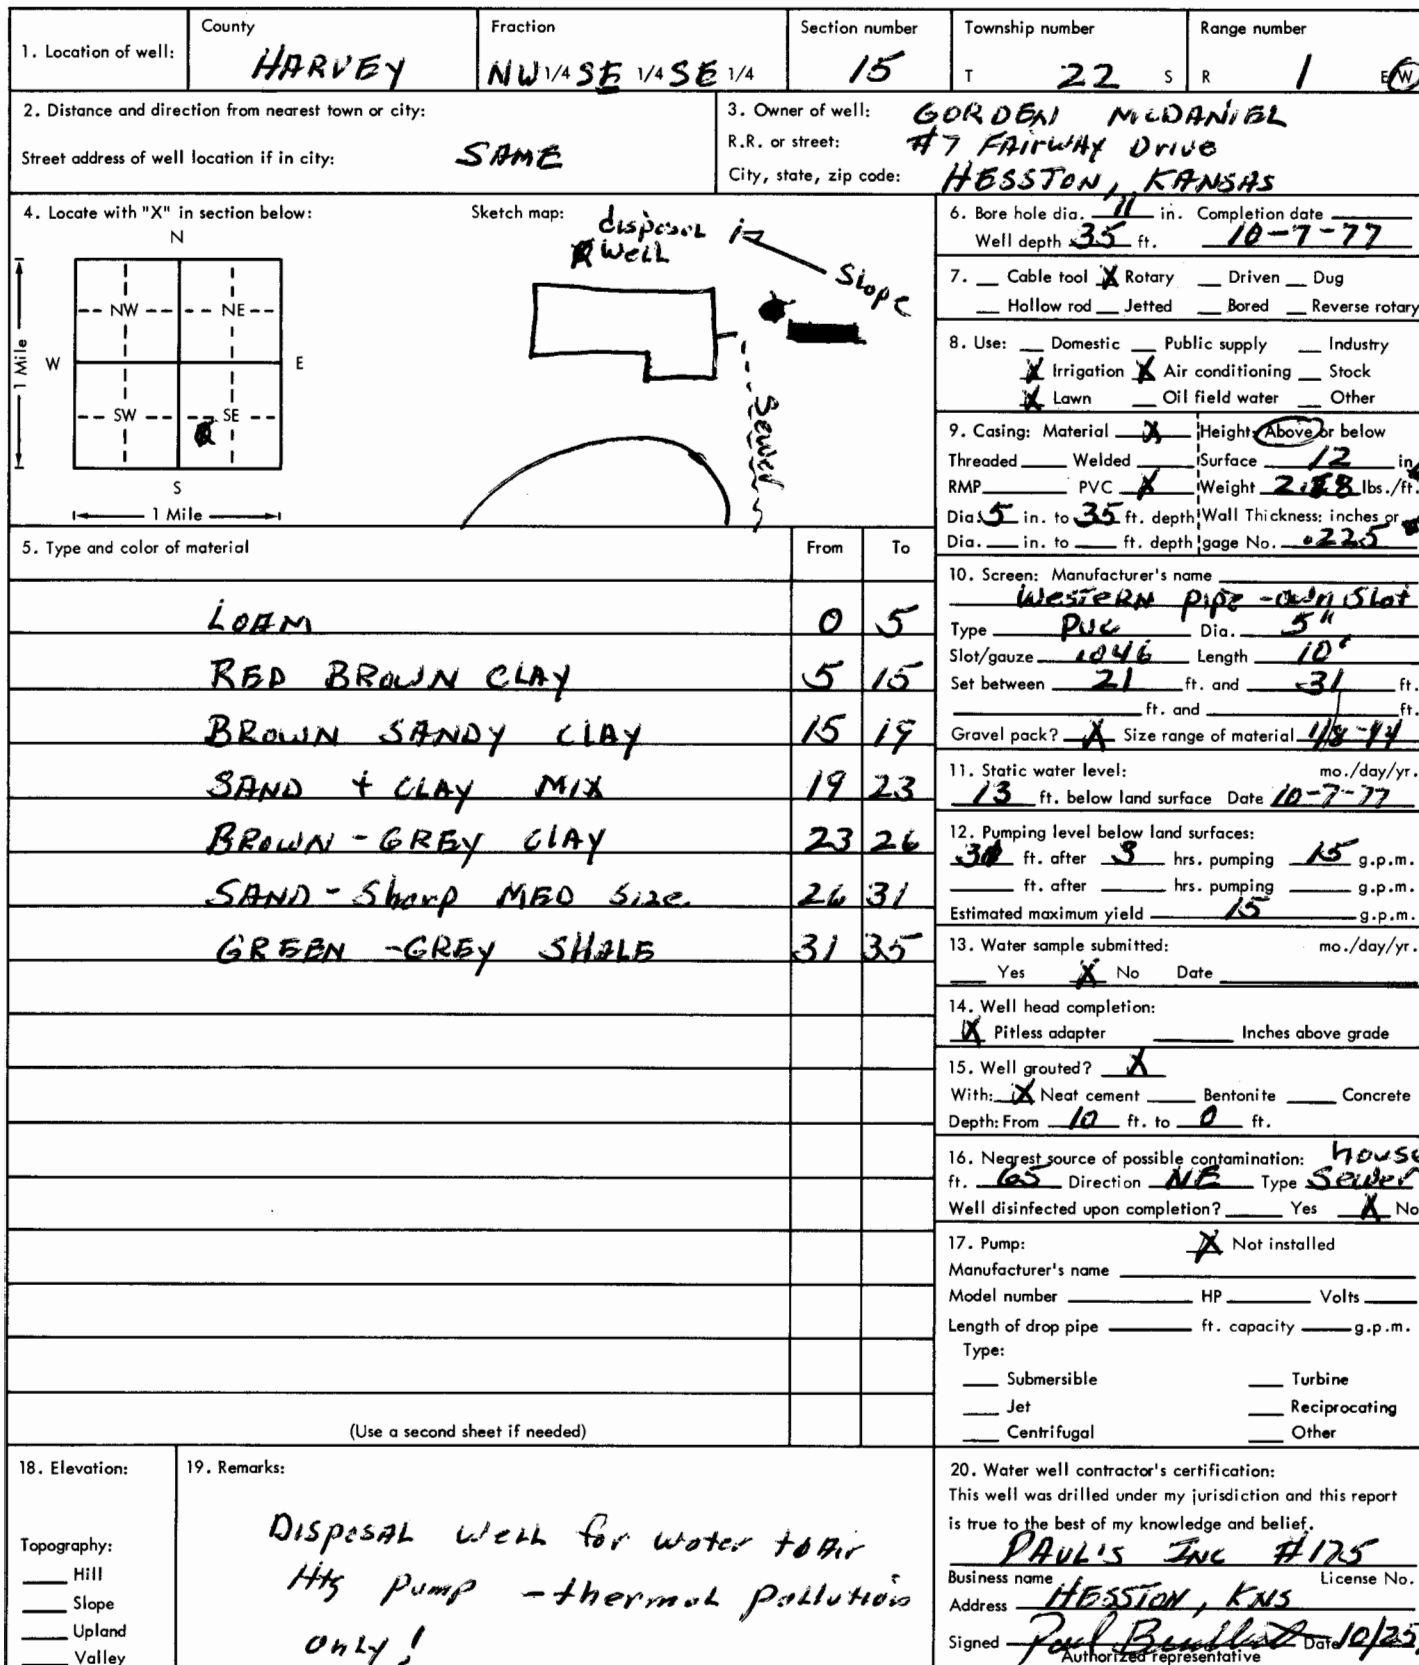 County Fraction Section number Township number Range number
1. Location of well: HARVEY NW 1/4 SE 1/4 SE 1/4 15 T 22 S R 1 E W
2. Distance and direction from nearest town or city:
Street address of well location if in city: SAME
3. Owner of well: GORDEN McDANIEL
R.R. or street: #7 FAIRWAY Drive
City, state, zip code: HESSTON, KANSAS
4. Locate with "X" in section below:
N
NW NE
W E
SW SE
S
1 Mile
1 Mile
Sketch map:
disposal
Well
Slope
Sewer
5. Type and color of material From To
LOAM 0 5
RED BROWN CLAY 5 15
BROWN SANDY CLAY 15 19
SAND + CLAY MIX 19 23
BROWN - GREY CLAY 23 26
SAND - Sharp MED Size 26 31
GREEN - GREY SHALE 31 35
(Use a second sheet if needed)
6. Bore hole dia. 11 in. Completion date
Well depth 35 ft. 10-7-77
7. Cable tool X Rotary Driven Dug
Hollow rod Jetted Bored Reverse rotary
8. Use: Domestic Public supply Industry
X Irrigation X Air conditioning Stock
X Lawn Oil field water Other
9. Casing: Material X Height: Above or below
Threaded Welded Surface 12 in.
RMP PVC X Weight lbs./ft.
Dia. 5 in. to 35 ft. depth Wall Thickness: inches or
Dia. in. to ft. depth gage No. .225
10. Screen: Manufacturer's name
WESTERN pipe - own Slot
Type PVC Dia. 5"
Slot/gauze .046 Length 10'
Set between 21 ft. and 31 ft.
ft. and ft.
Gravel pack? X Size range of material
11. Static water level: mo./day/yr.
13 ft. below land surface Date 10-7-77
12. Pumping level below land surfaces:
ft. after 3 hrs. pumping 15 g.p.m.
ft. after hrs. pumping g.p.m.
Estimated maximum yield 15 g.p.m.
13. Water sample submitted: mo./day/yr.
Yes X No Date
14. Well head completion:
X Pitless adapter Inches above grade
15. Well grouted? X
With: X Neat cement Bentonite Concrete
Depth: From 10 ft. to 0 ft.
16. Nearest source of possible contamination: house
ft. 65 Direction NE Type Sewer
Well disinfected upon completion? Yes X No
17. Pump: X Not installed
Manufacturer's name
Model number HP Volts
Length of drop pipe ft. capacity g.p.m.
Type:
Submersible Turbine
Jet Reciprocating
Centrifugal Other
18. Elevation:
Topography:
Hill
Slope
Upland
Valley
19. Remarks:
Disposal well for water to Air
Htg Pump - thermal Pollution
only!
20. Water well contractor's certification:
This well was drilled under my jurisdiction and this report
is true to the best of my knowledge and belief.
PAUL'S INC #175
Business name License No.
Address HESSTON, KNS
Signed Paul Date 10/25
Authorized representative